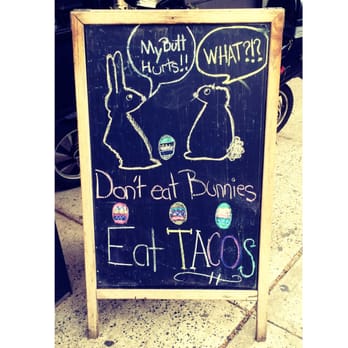 My Butt
Hurts!!
WHAT?!?
Don't eat Bunnies
Eat TACOS